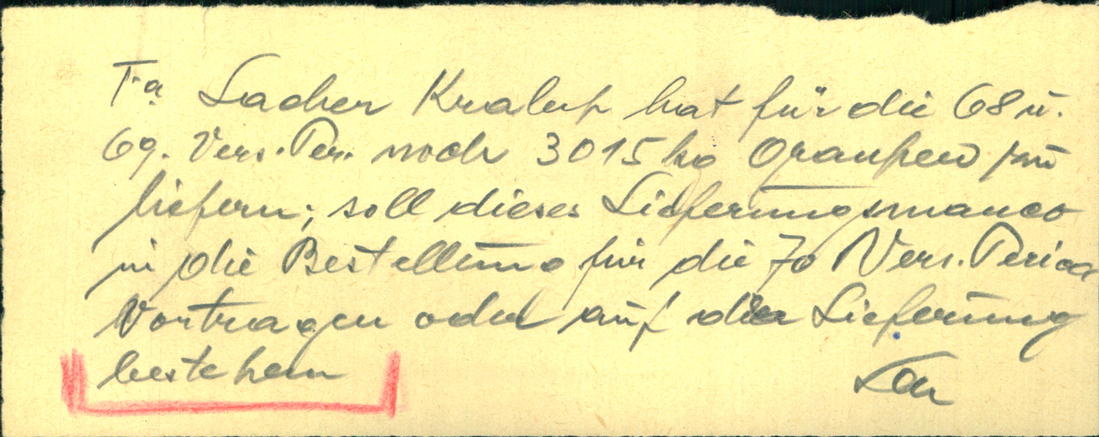 Fa. Lacher Kralup hat für die 68 u.
69. Vers. Per. noch 3015 kg Graupen zu
liefern; soll dieses Lieferungsmanco
in die Bestellung für die 70 Vers. Period
Vortragen oder auf die Lieferung
bestehen